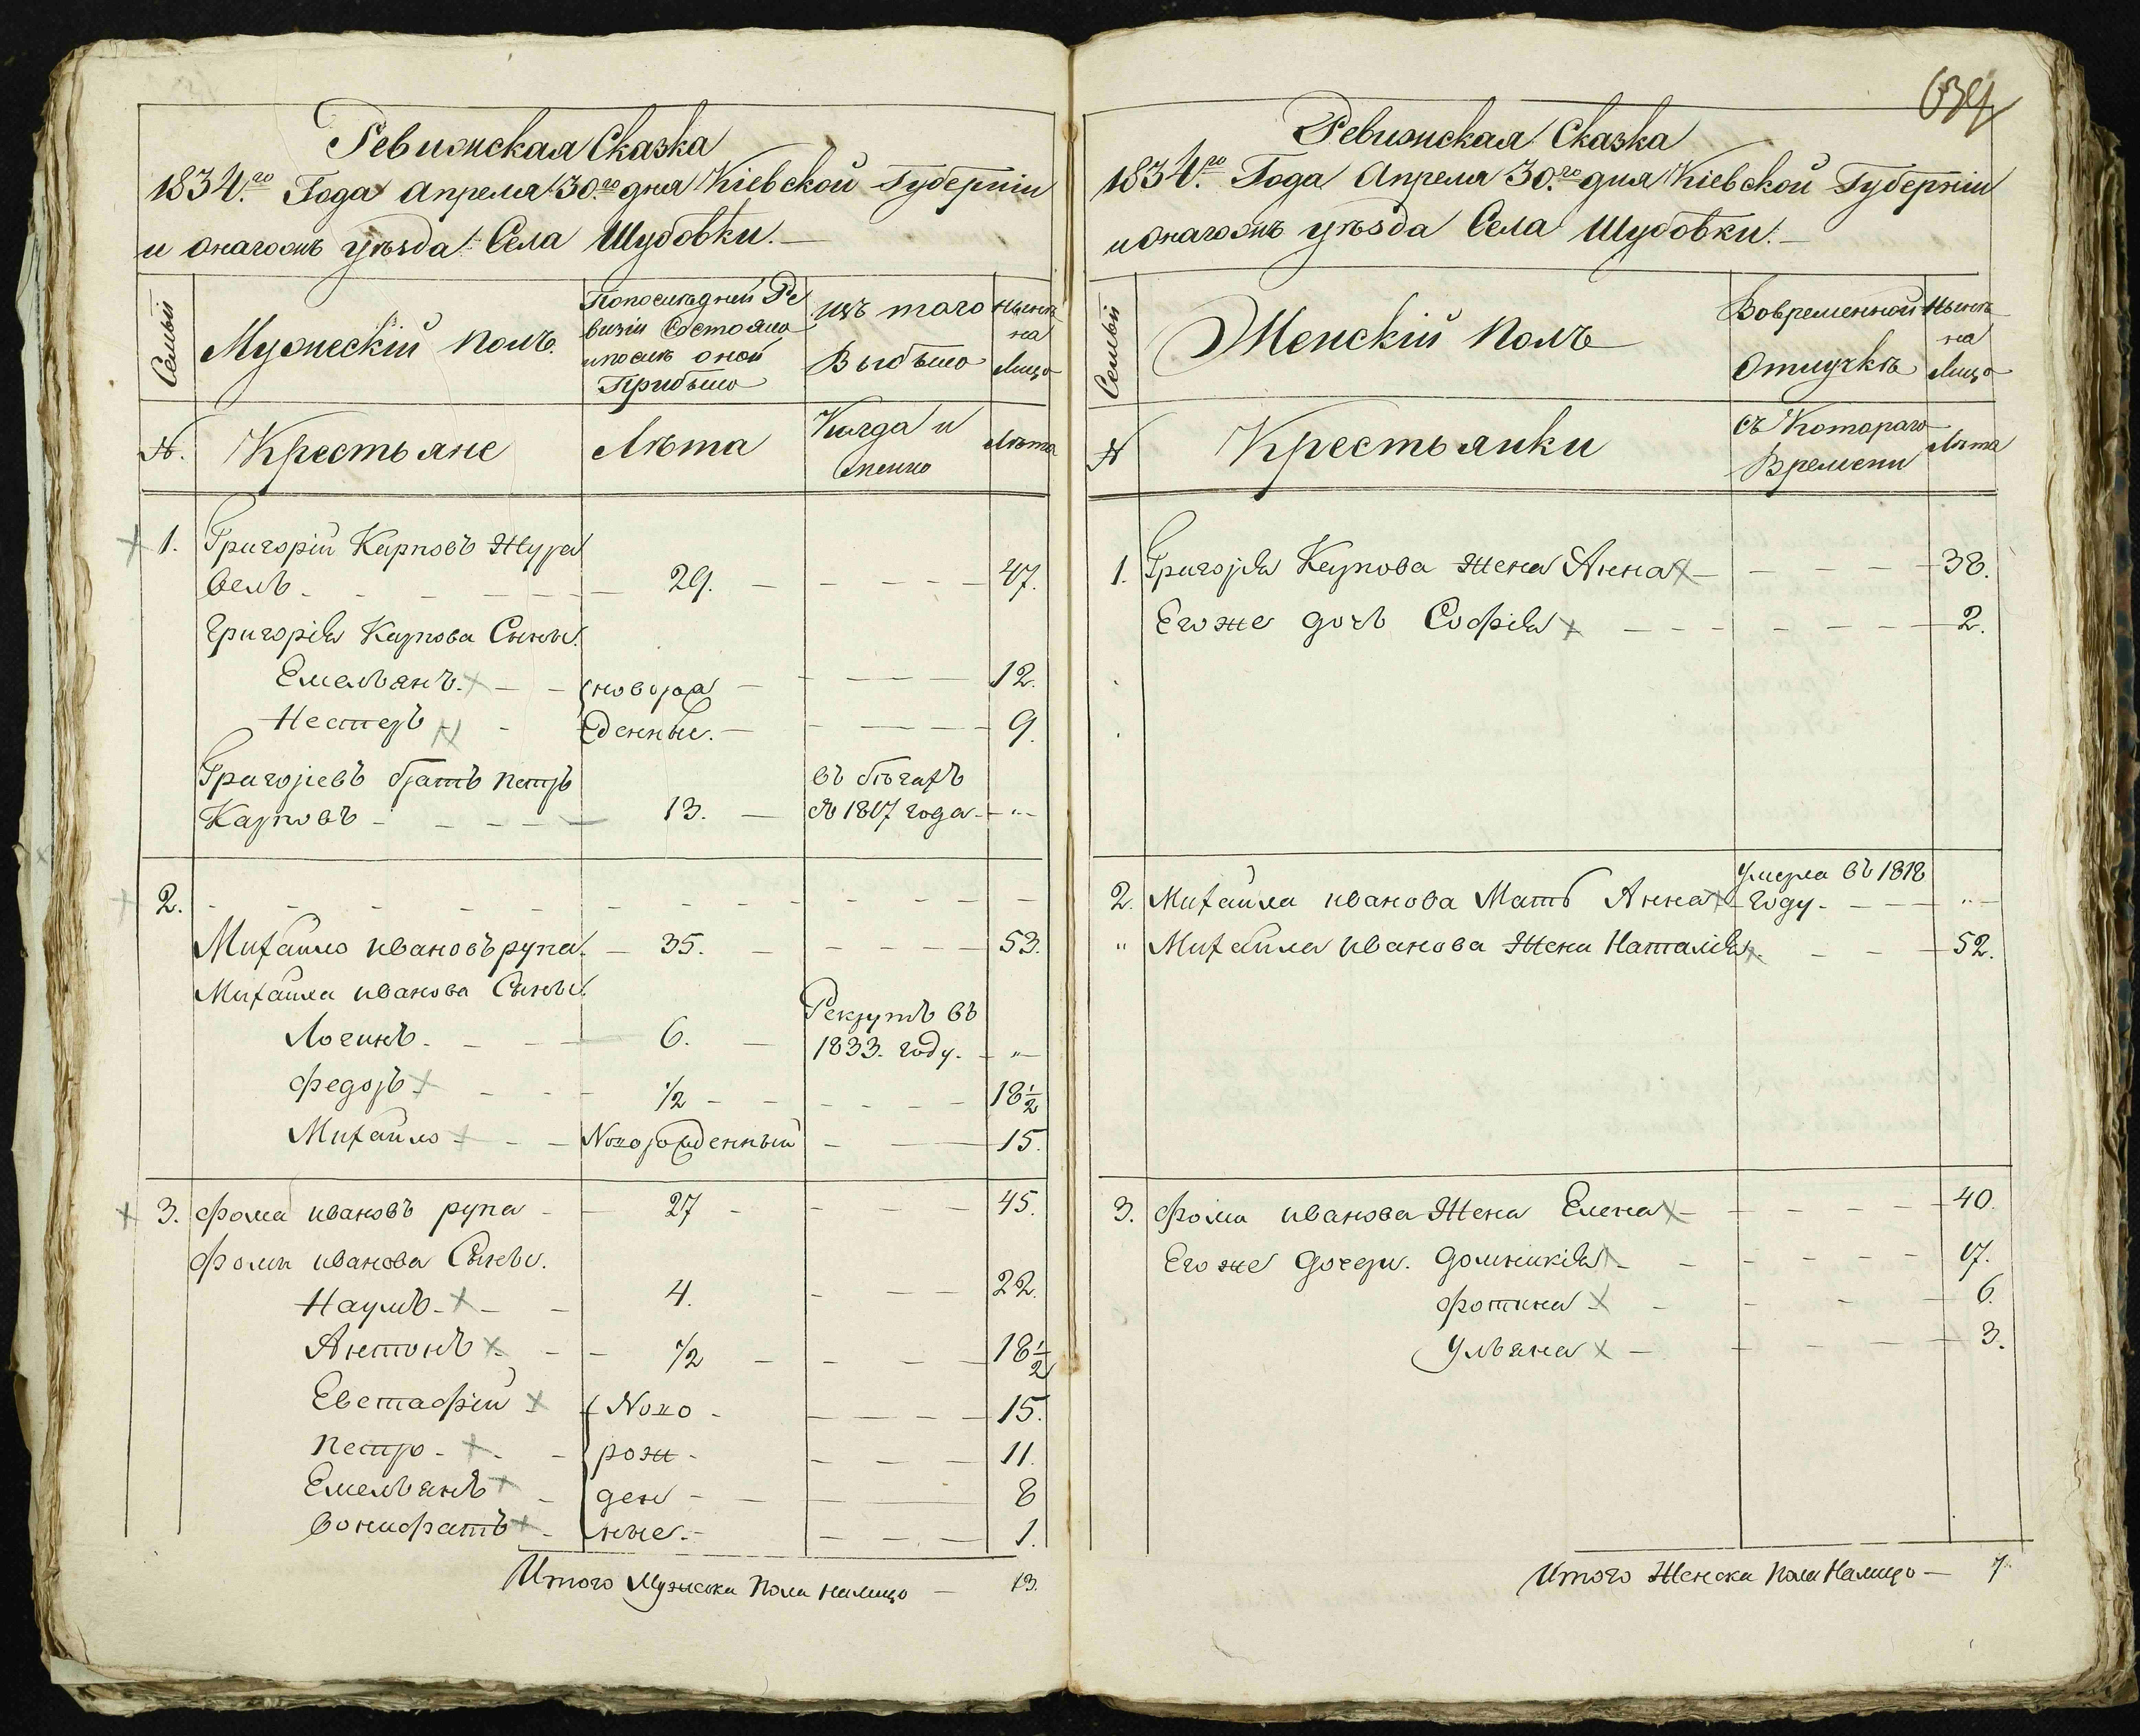 Ревижская Сказка
1834.го Года Апреля 30.го дня Кіевской Губерніи
и онагожъ уѣзда Села Шудовки.
Семьи
Мужескій полъ.
Попослѣдней Ре
визіи Состояло
ипослѣ оной
Прибыло
изъ того
Выбыло
Нынѣ
на
Лицо
№.
Крестьяне
Лѣта
Когда и
Лѣта
1. Григорій Карповъ Жура
вель - 29. - 47.
Григорія Карпова Сыны.
Емельянъ. новорож 12.
Нестеръ денные. 9.
Григоріевъ братъ петръ въ бѣгахъ
Карповъ - 13. - съ 1817 года - "
2.
Михайло ивановъ рупа. - 35. - 53.
Михайла иванова Сыны.
Рекрутъ въ
Логинъ. - 6. - 1833. году. - "
федоръ - 1/2 - 18 1/2
Михайло - Новорожденный - 15.
3. фома ивановъ рупа - 27 - 45.
фомы иванова Сыны.
Наумъ - 4. - 22.
Антонъ - 1/2 - 18 1/2
Евстафій Ново - 15.
петро - рож - 11.
Емельянъ ден - 8
вонифатъ ные. - 1.
Итого Мужеска пола налицо - 13.
634
Ревижская Сказка
1834.го Года Апреля 30.го дня Кіевской Губерніи
и онагожъ уѣзда Села Шудовки.
Семьи
Женскій полъ
Вовременной
Отлучкѣ
Нынѣ
на
Лицо
№
Крестьянки
съ Котораго
Времени
Лѣта
1. Григорія Карпова жена Анна - 38.
Егоже дочь Софія - 2.
умерла въ 1818
2. Михайла иванова Мать Анна - году. - "
" Михайла иванова Жена Наталія - 52.
3. фомы иванова Жена Елена - 40.
Егоже дочери. домникія - 17.
фотина - 6.
Ульяна - 3.
Итого Женска пола Налицо - 7.